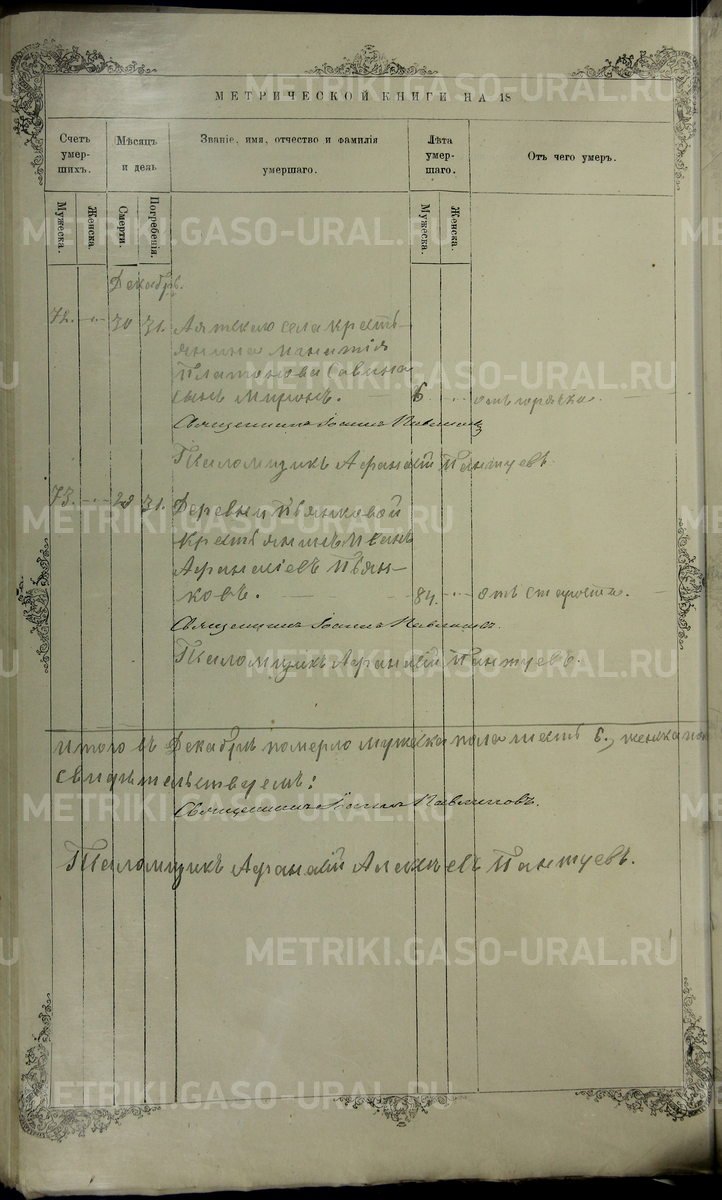 МЕТРИЧЕСКОЙ КНИГИ НА 18
Счетъ умершихъ.
Мѣсяцъ и день
Званіе, имя, отчество и фамилія умершаго.
Лѣта умершаго.
Отъ чего умеръ.
Мужеска.
Женска.
Смерти.
Погребенія.
Мужеска.
Женска.
Декабрь.
72. 30 31. Аятскаго села кресть-
янина
Платонова Савина
сынъ Миронъ. 6 отъ горячки.
Священникъ Іоаннъ Павлиновъ
Псаломщикъ Афанасій Пантуевъ
73. 28 31. Деревни Пьянковой
крестьянинъ Иванъ
Афанасіевъ Пьян-
ковъ. 84. отъ старости.
Священникъ Іоаннъ Павлиновъ.
Псаломщикъ Афанасій Пантуевъ.
Итого въ Декабрѣ померло мужеска пола шесть 6, женска
свидѣтельствуемъ:
Священникъ Іоаннъ Павлиновъ.
Псаломщикъ Афанасій Алексѣевъ Пантуевъ.
METRIKI.GASO-URAL.RU